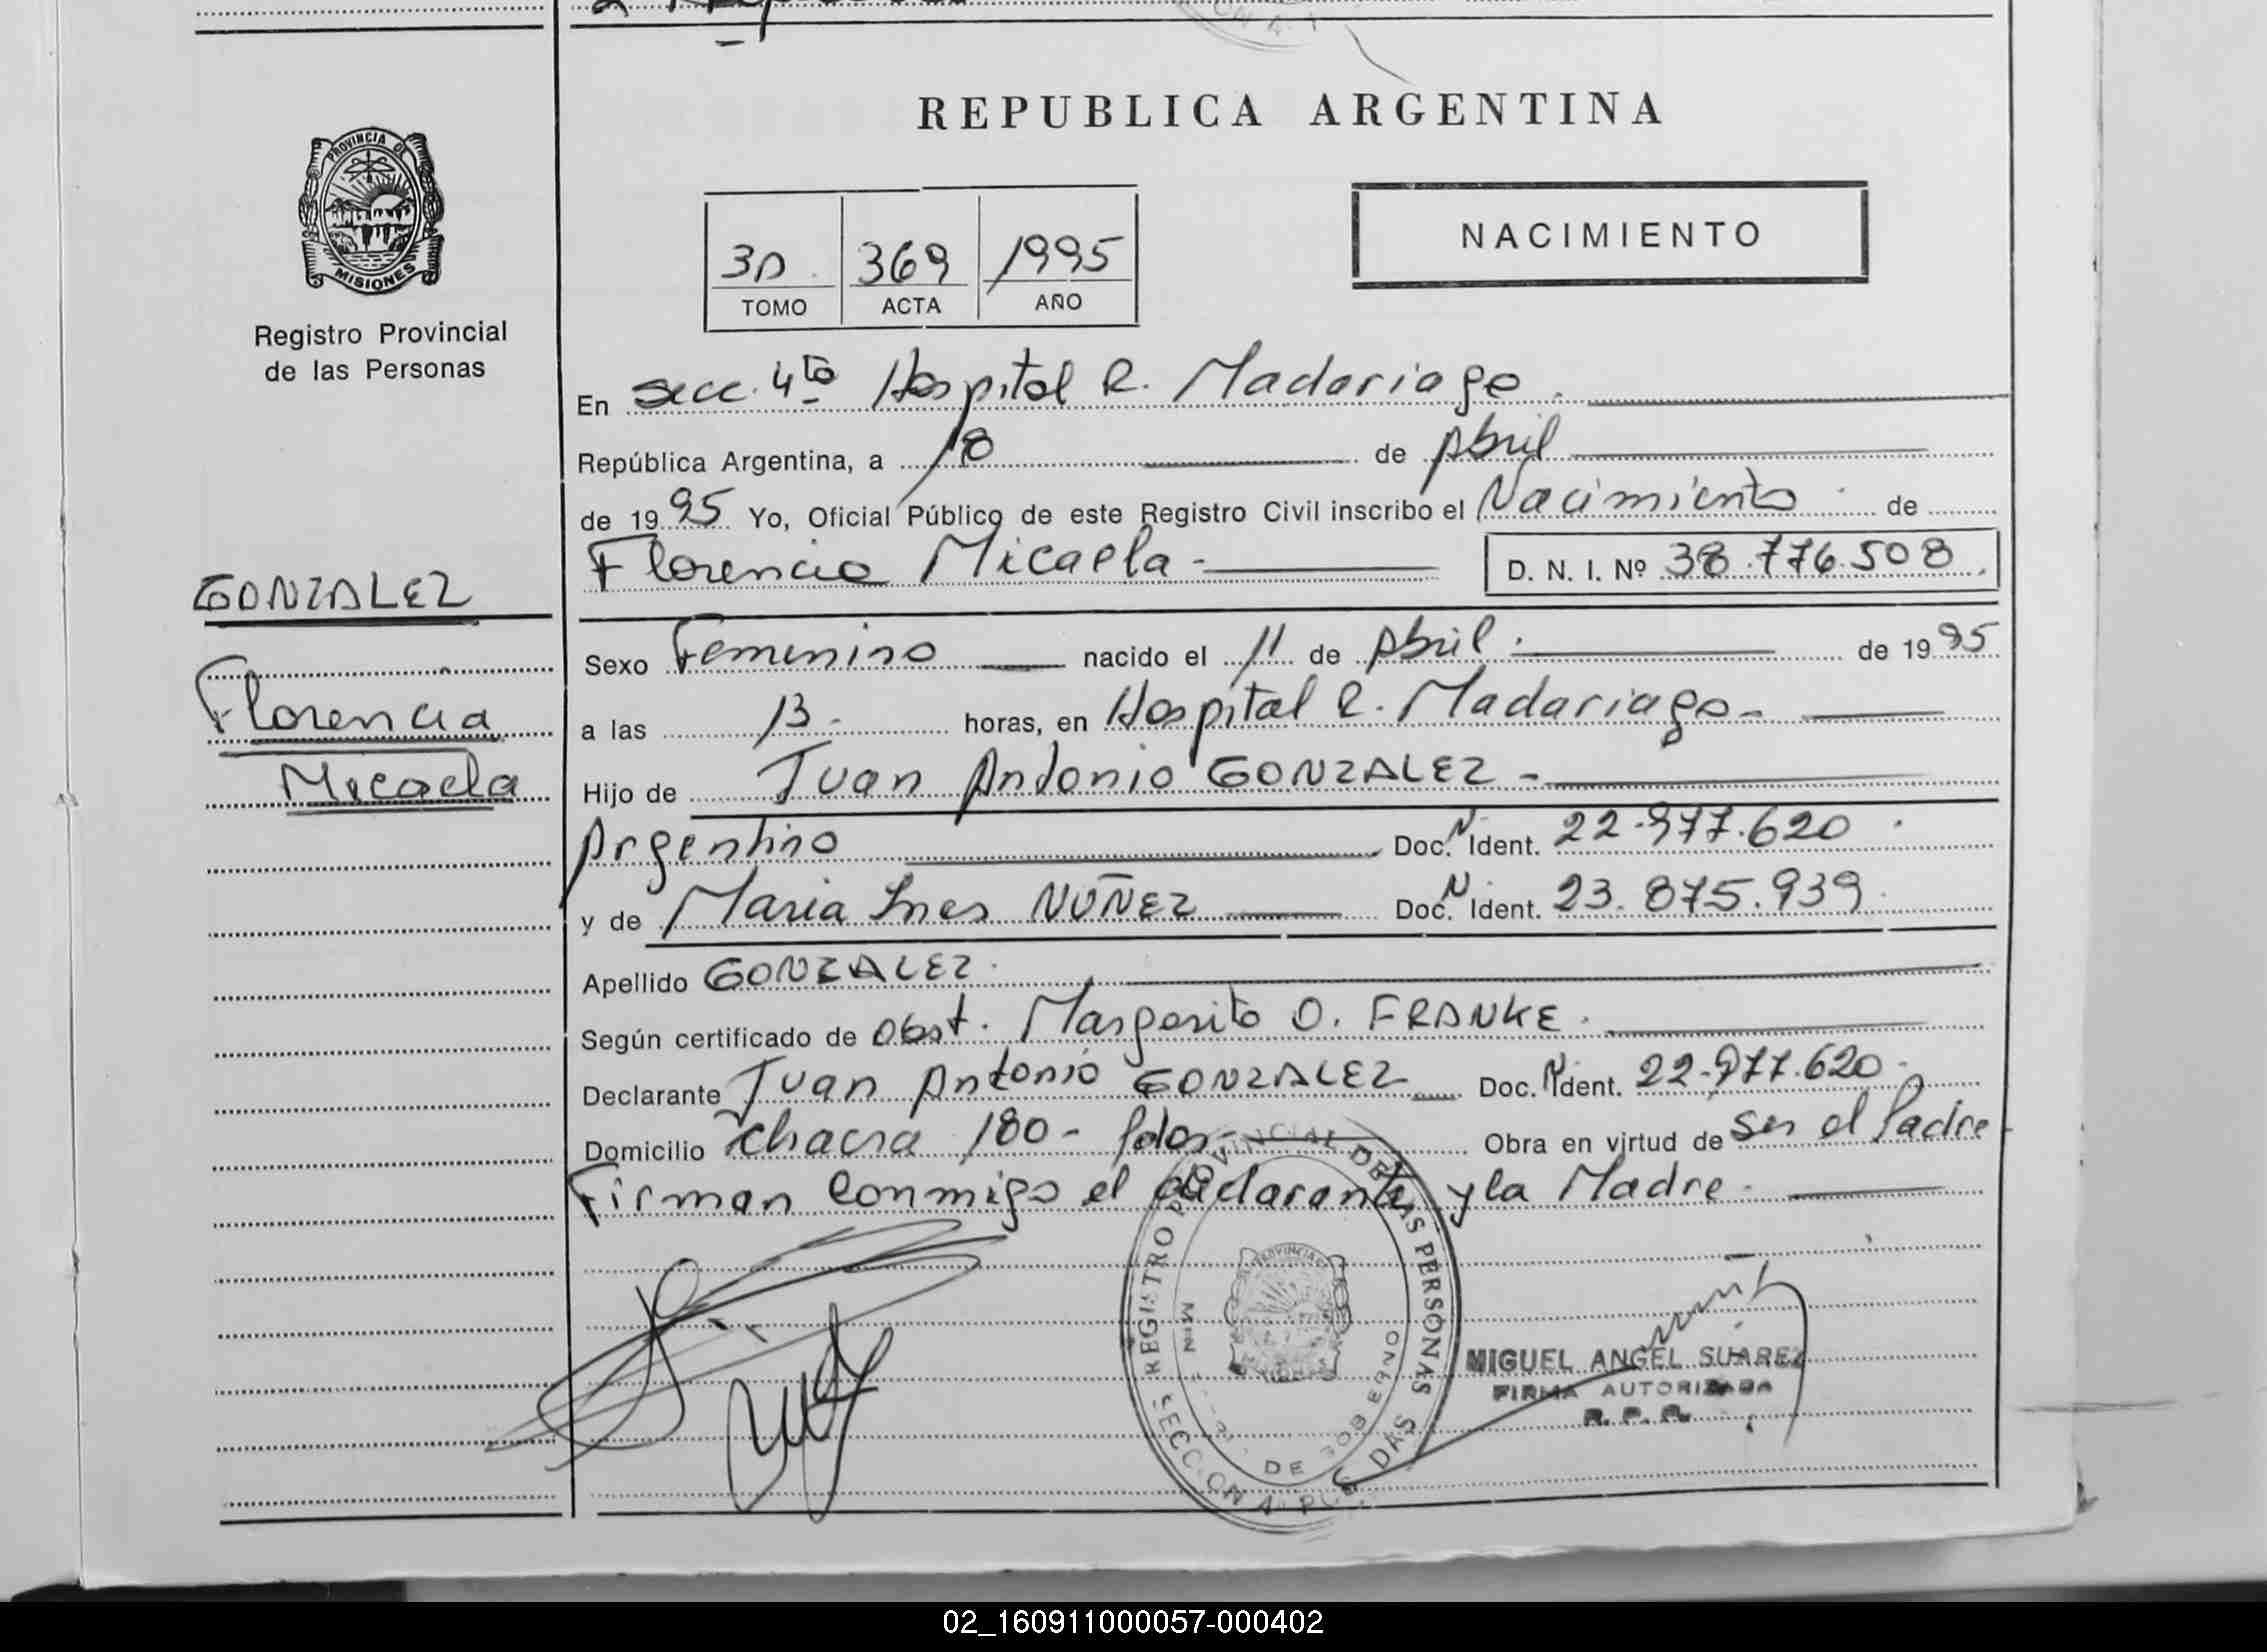 REPUBLICA ARGENTINA
PROVINCIA DE
MISIONES
Registro Provincial
de las Personas
NACIMIENTO
3D 369 1995
TOMO ACTA AÑO
En secc. 4ta Hospital R. Madariaga.
República Argentina, a 18 de Abril
de 1995 Yo, Oficial Público de este Registro Civil inscribo el Nacimiento de
Florencia Micaela - D. N. I. Nº 38.776.508
GONZALEZ
Florencia
Micaela
Sexo Femenino nacido el 11 de Abril. de 1995
a las 13. horas, en Hospital R. Madariaga-
Hijo de Juan Antonio GONZALEZ -
Argentino Doc. N. Ident. 22.977.620
y de Maria Ines NUÑEZ Doc. N. Ident. 23.875.939
Apellido GONZALEZ.
Según certificado de obst. Margarita O. FRANKE.
Declarante Juan Antonio GONZALEZ Doc. N. Ident. 22.977.620-
Domicilio chacra 180- Pdas- Obra en virtud de ser el Padre
Firman conmigo el declarante y la Madre.
REGISTRO PROVINCIAL DE LAS PERSONAS
SECCION 4 POSADAS
DE GOBIERNO
MIGUEL ANGEL SUAREZ
FIRMA AUTORIZADA
R. P. P.
02_160911000057-000402